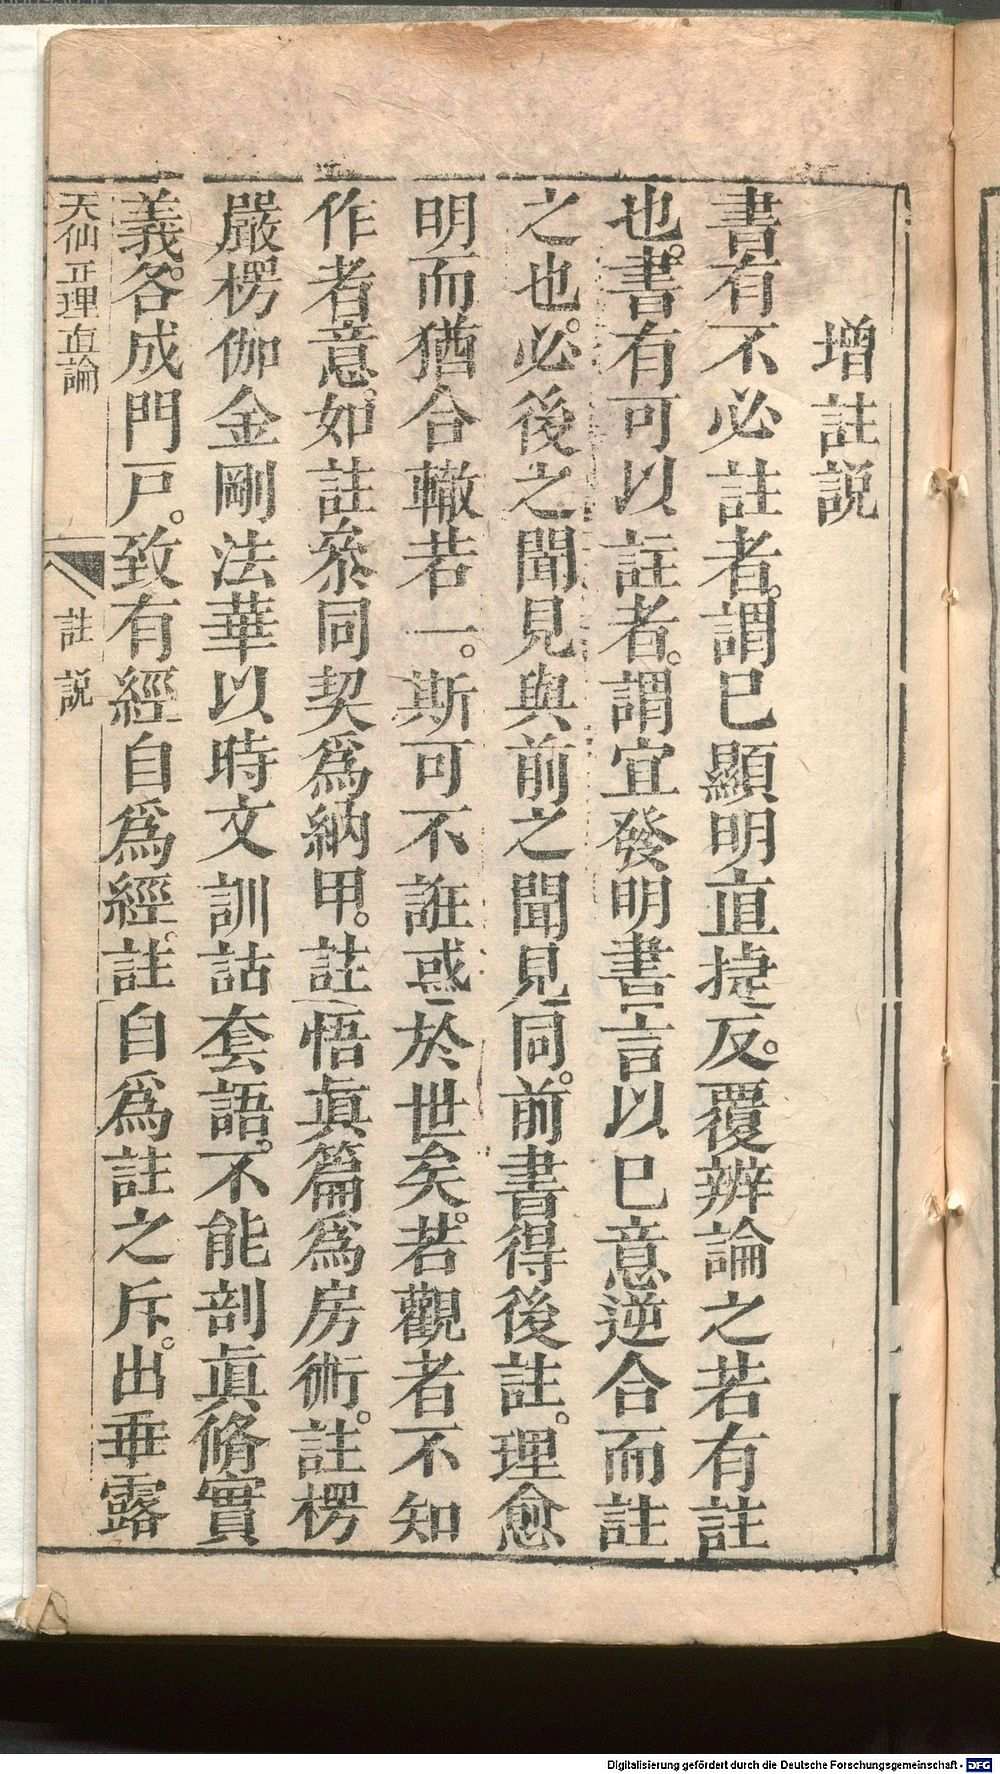 增註説
書有不必註者。謂已顯明直捷反。覆辨論之若有註
也。書有可以註者。謂宜發明書言以巳意逆合而註
之也。必後之聞見與前之聞見同。前書得後註。理愈
明而猶合轍若一。斯可不誑惑於世矣。若觀者不知
作者意。如註叅同契爲納甲。註悟眞篇爲房術。註楞
嚴楞伽金剛法華以時文訓詁套語。不能剖眞脩實
義。各成門戸。致有經自爲經。註自爲註之斥。出乖露
天仙正理直論
註説
Digitalisierung gefördert durch die Deutsche Forschungsgemeinschaft - DFG